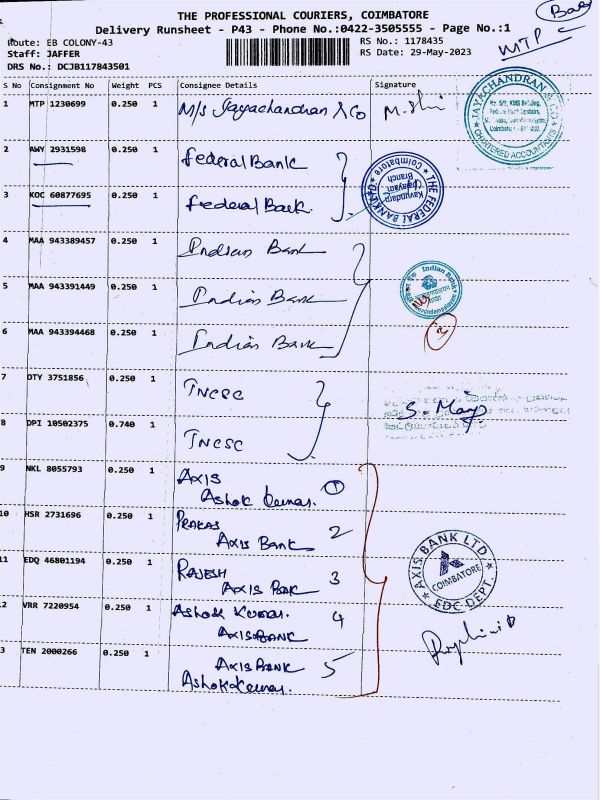 THE PROFESSIONAL COURIERS, COIMBATORE
Delivery Runsheet - P43 - Phone No.:0422-3505555 - Page No.:1
Route: EB COLONY-43
RS No.: 1178435
Staff: JAFFER
RS Date: 29-May-2023
DRS No.: DCJB117843501
MTP
S No Consignment No Weight PCS Consignee Details Signature
1 MTP 1230699 0.250 1 M/s Jayachandran & Co
JAYACHANDRAN & CO
CHARTERED ACCOUNTANTS
2 AWY 2931598 0.250 1 Federal Bank
3 KOC 60877695 0.250 1 Federal Bank
THE FEDERAL BANK LTD
Coimbatore
Branch
4 MAA 943389457 0.250 1 Indian Bank
5 MAA 943391449 0.250 1 Indian Bank
Indian Bank
6 MAA 943394468 0.250 1 Indian Bank
7 OTY 3751856 0.250 1 TNCSC
8 DPI 10502375 0.740 1 TNCSC
9 NKL 8055793 0.250 1 AXIS
Ashok Kumar. 1
10 HSR 2731696 0.250 1 PRAKAS
AXIS BANK 2
11 EDQ 46801194 0.250 1 RAJESH
AXIS BANK 3
12 VRR 7220954 0.250 1 Ashok Kumar. 4
AXIS BANK
13 TEN 2000266 0.250 1 AXIS BANK 5
Ashok Kumar.
AXIS BANK LTD
COIMBATORE
EDC DEPT.